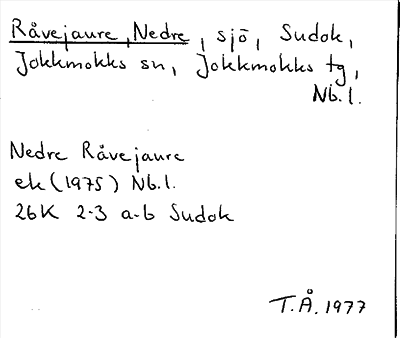 Råvejaure, Nedre, sjö, Sudok,
Jokkmokks sn, Jokkmokks tg,
Nb.l.
Nedre Råvejaure
ek (1975) Nb.l.
26K 2-3 a-b Sudok
T.Å. 1977